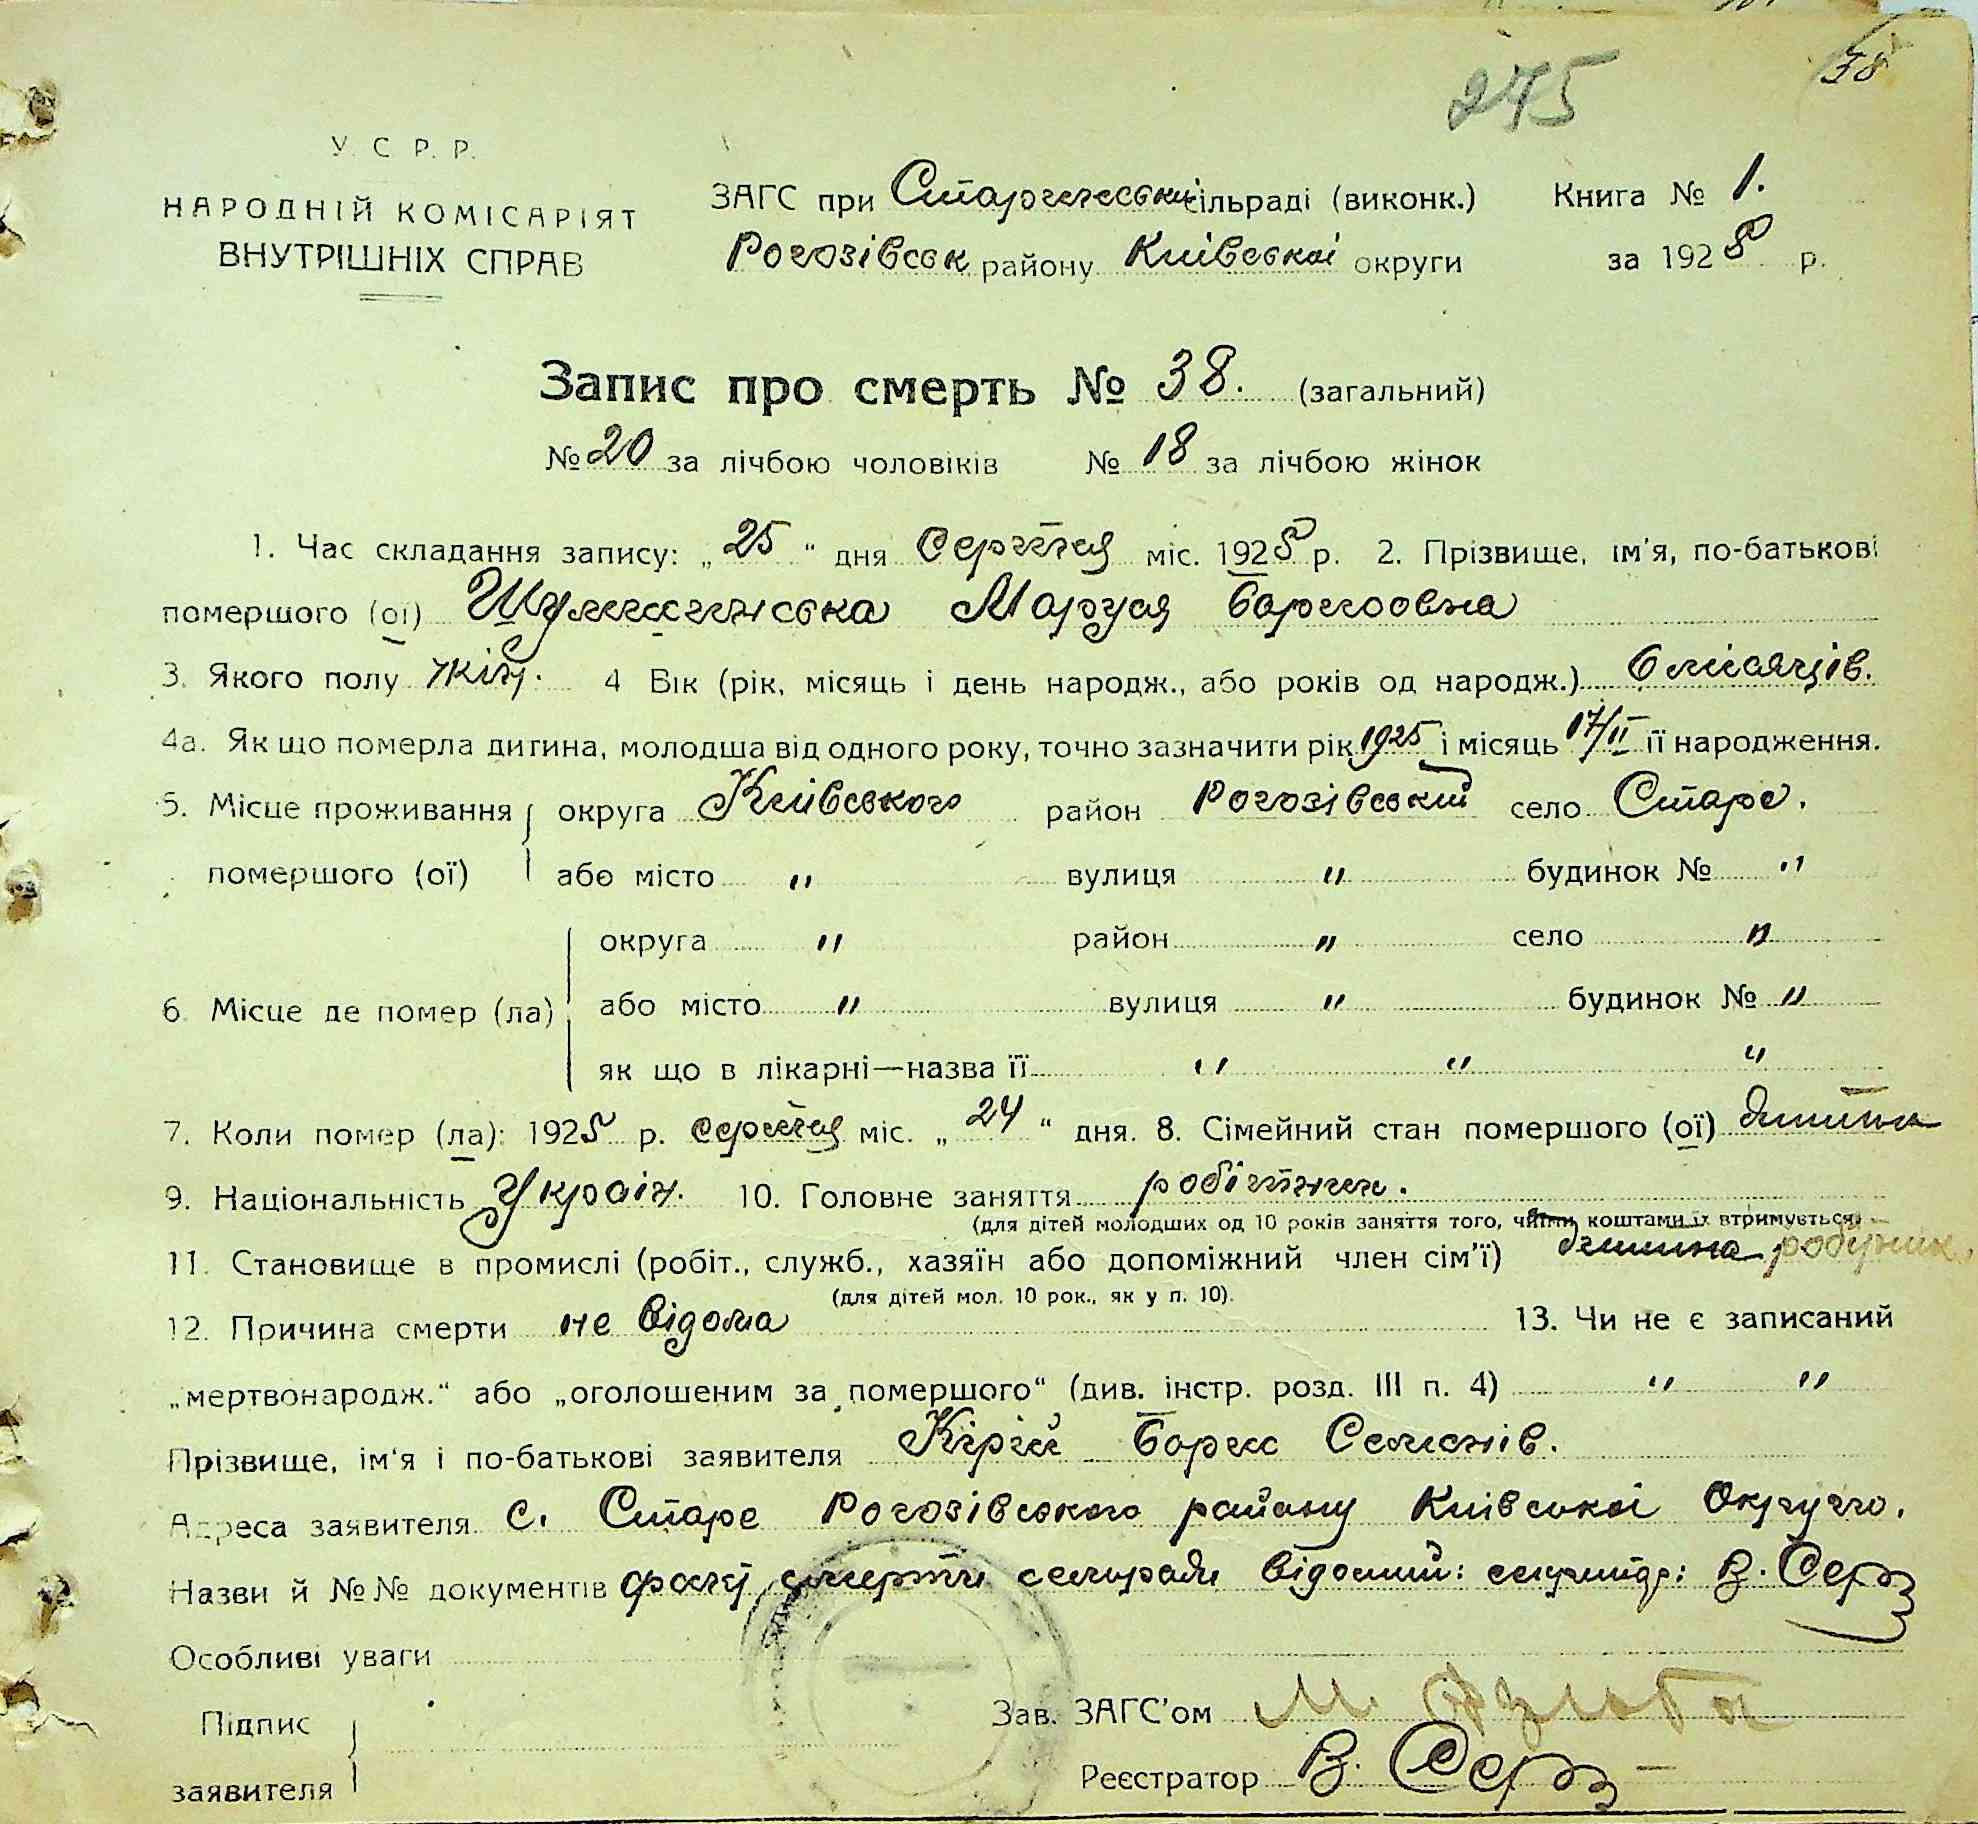 38
275
У. С. Р. Р.
НАРОДНІЙ КОМІСАРІЯТ
ВНУТРІШНІХ СПРАВ
ЗАГС при сільраді (виконк.) Книга № 1.
Рогозівськ району Київської округи за 1925 р.
Запис про смерть № 38. (загальний)
№ 20 за лічбою чоловіків № 18 за лічбою жінок
1. Час складання запису: „ 25 “ дня Серпня міс. 1925 р. 2. Прізвище, ім'я, по-батькові
помершого (ої) Маруся Борисовна
3. Якого полу жін. 4 Вік (рік, місяць і день народж., або років од народж.) 6 місяців.
4а. Як що померла дитина, молодша від одного року, точно зазначити рік 1925 і місяць 17/II її народження.
5. Місце проживання округа Київського район Рогозівський село Старе.
помершого (ої) або місто " вулиця " будинок № "
округа " район " село "
6. Місце де помер (ла) або місто " вулиця " будинок № "
як що в лікарні—назва її " " "
7. Коли помер (ла): 1925 р. серпня міс. „ 24 “ дня. 8. Сімейний стан помершого (ої) дитина
9. Національність Україн. 10. Головне заняття робітник.
(для дітей молодших од 10 років заняття того, чиїми коштами їх втримується)
11. Становище в промислі (робіт., служб., хазяїн або допоміжний член сім'ї) дитина
(для дітей мол. 10 рок., як у п. 10).
12. Причина смерти не відома 13. Чи не є записаний
„мертвонародж.“ або „оголошеним за помершого“ (див. інстр. розд. III п. 4) " "
Прізвище, ім'я і по-батькові заявителя Кірій Борис Семенів.
Адреса заявителя с. Старе Рогозівського району Київської Округи.
Назви й №№ документів факт смерти сельради відомий: секретар: В. Сер
Особливі уваги
Підпис
заявителя
Зав. ЗАГС'ом М.
Реєстратор В. Сер